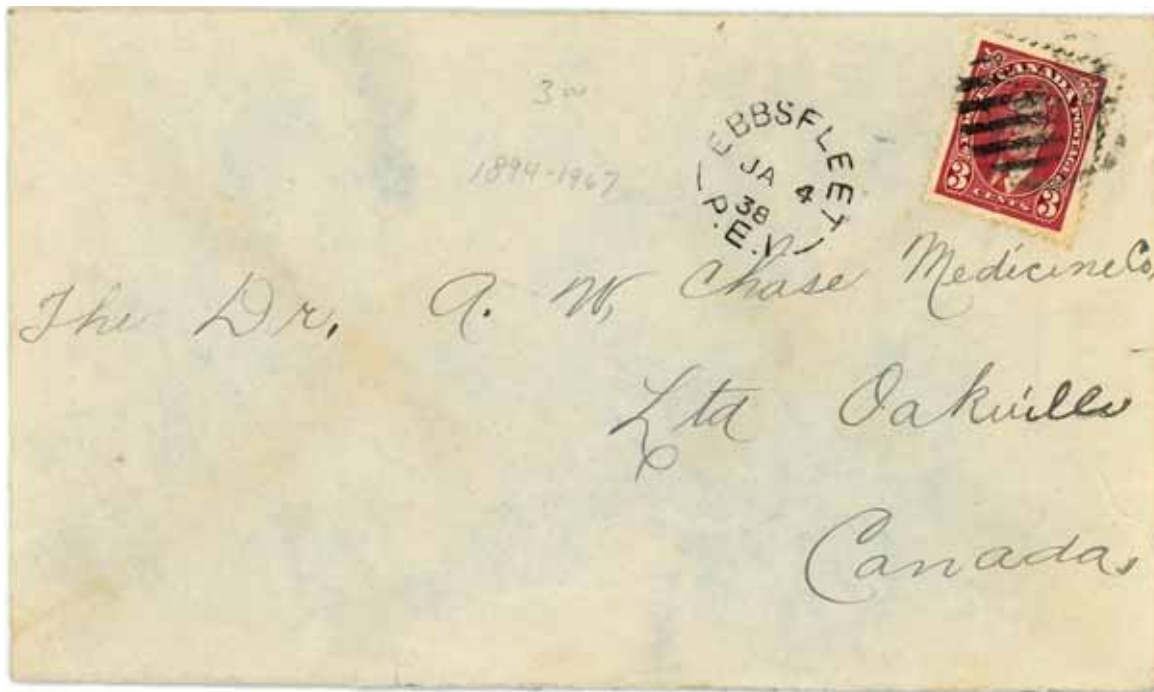 3⁰⁰
1894-1967
EBBSFLEET
JA 4
38
P.E.I.
CANADA
POSTES POSTAGE
3 CENTS 3
The Dr. A. W. Chase Medicine Co,
Ltd Oakville
Canada